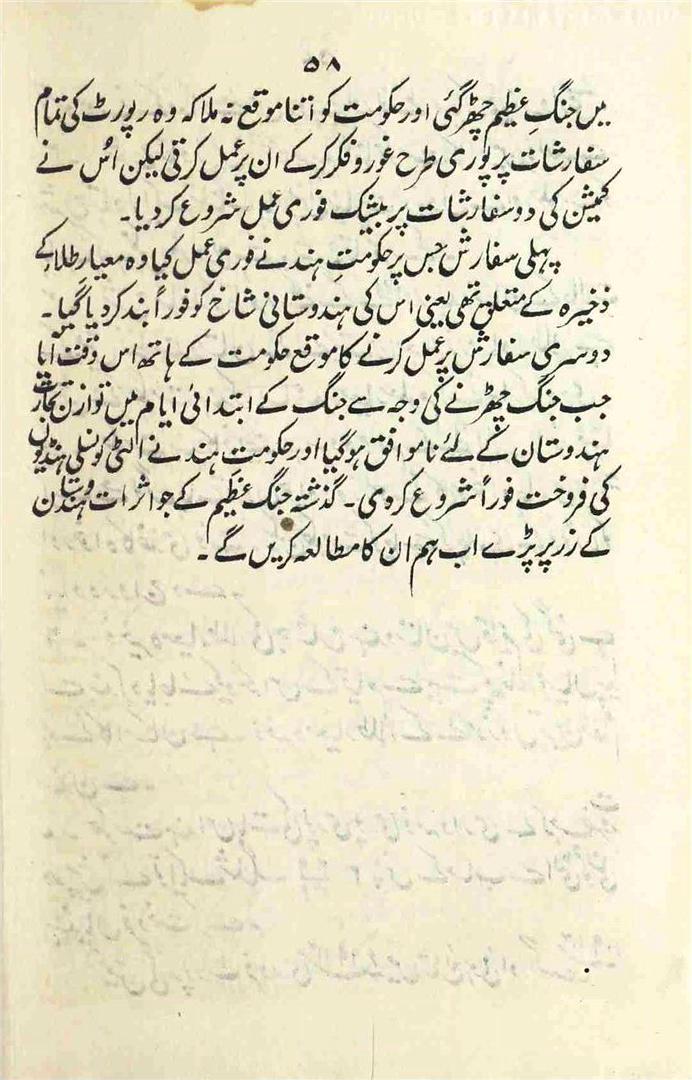 ۵۸
میں جنگِ عظیم چھڑ گئی اور حکومت کو اتنا موقع نہ ملا کہ وہ رپورٹ کی تمام
سفارشات پر پوری طرح غور و فکر کرکے ان پر عمل کرتی لیکن اُس نے
کمیشن کی دو سفارشات پر بیشک فوری عمل شروع کر دیا۔
پہلی سفارش جس پر حکومتِ ہند نے فوری عمل کیا وہ معیارِ طلاء کے
ذخیرہ کے متعلق تھی یعنی اس کی ہندوستانی شاخ کو فوراً بند کر دیا گیا۔
دوسری سفارش پر عمل کرنے کا موقع حکومت کے ہاتھ اس وقت آیا
جب جنگ چھڑنے کی وجہ سے جنگ کے ابتدائی ایام میں توازن تجارت
ہندوستان کے لئے ناموافق ہو گیا اور حکومتِ ہند نے الٹی کونسلی ہنڈیوں
کی فروخت فوراً شروع کر دی۔ گذشتہ جنگ عظیم کے جو اثرات ہندوستان
کے زر پر پڑے اب ہم ان کا مطالعہ کریں گے۔